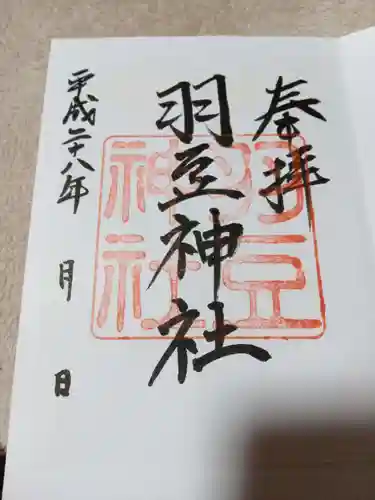 奉拝
羽豆神社
羽豆
神社
平成二十八年 月 日